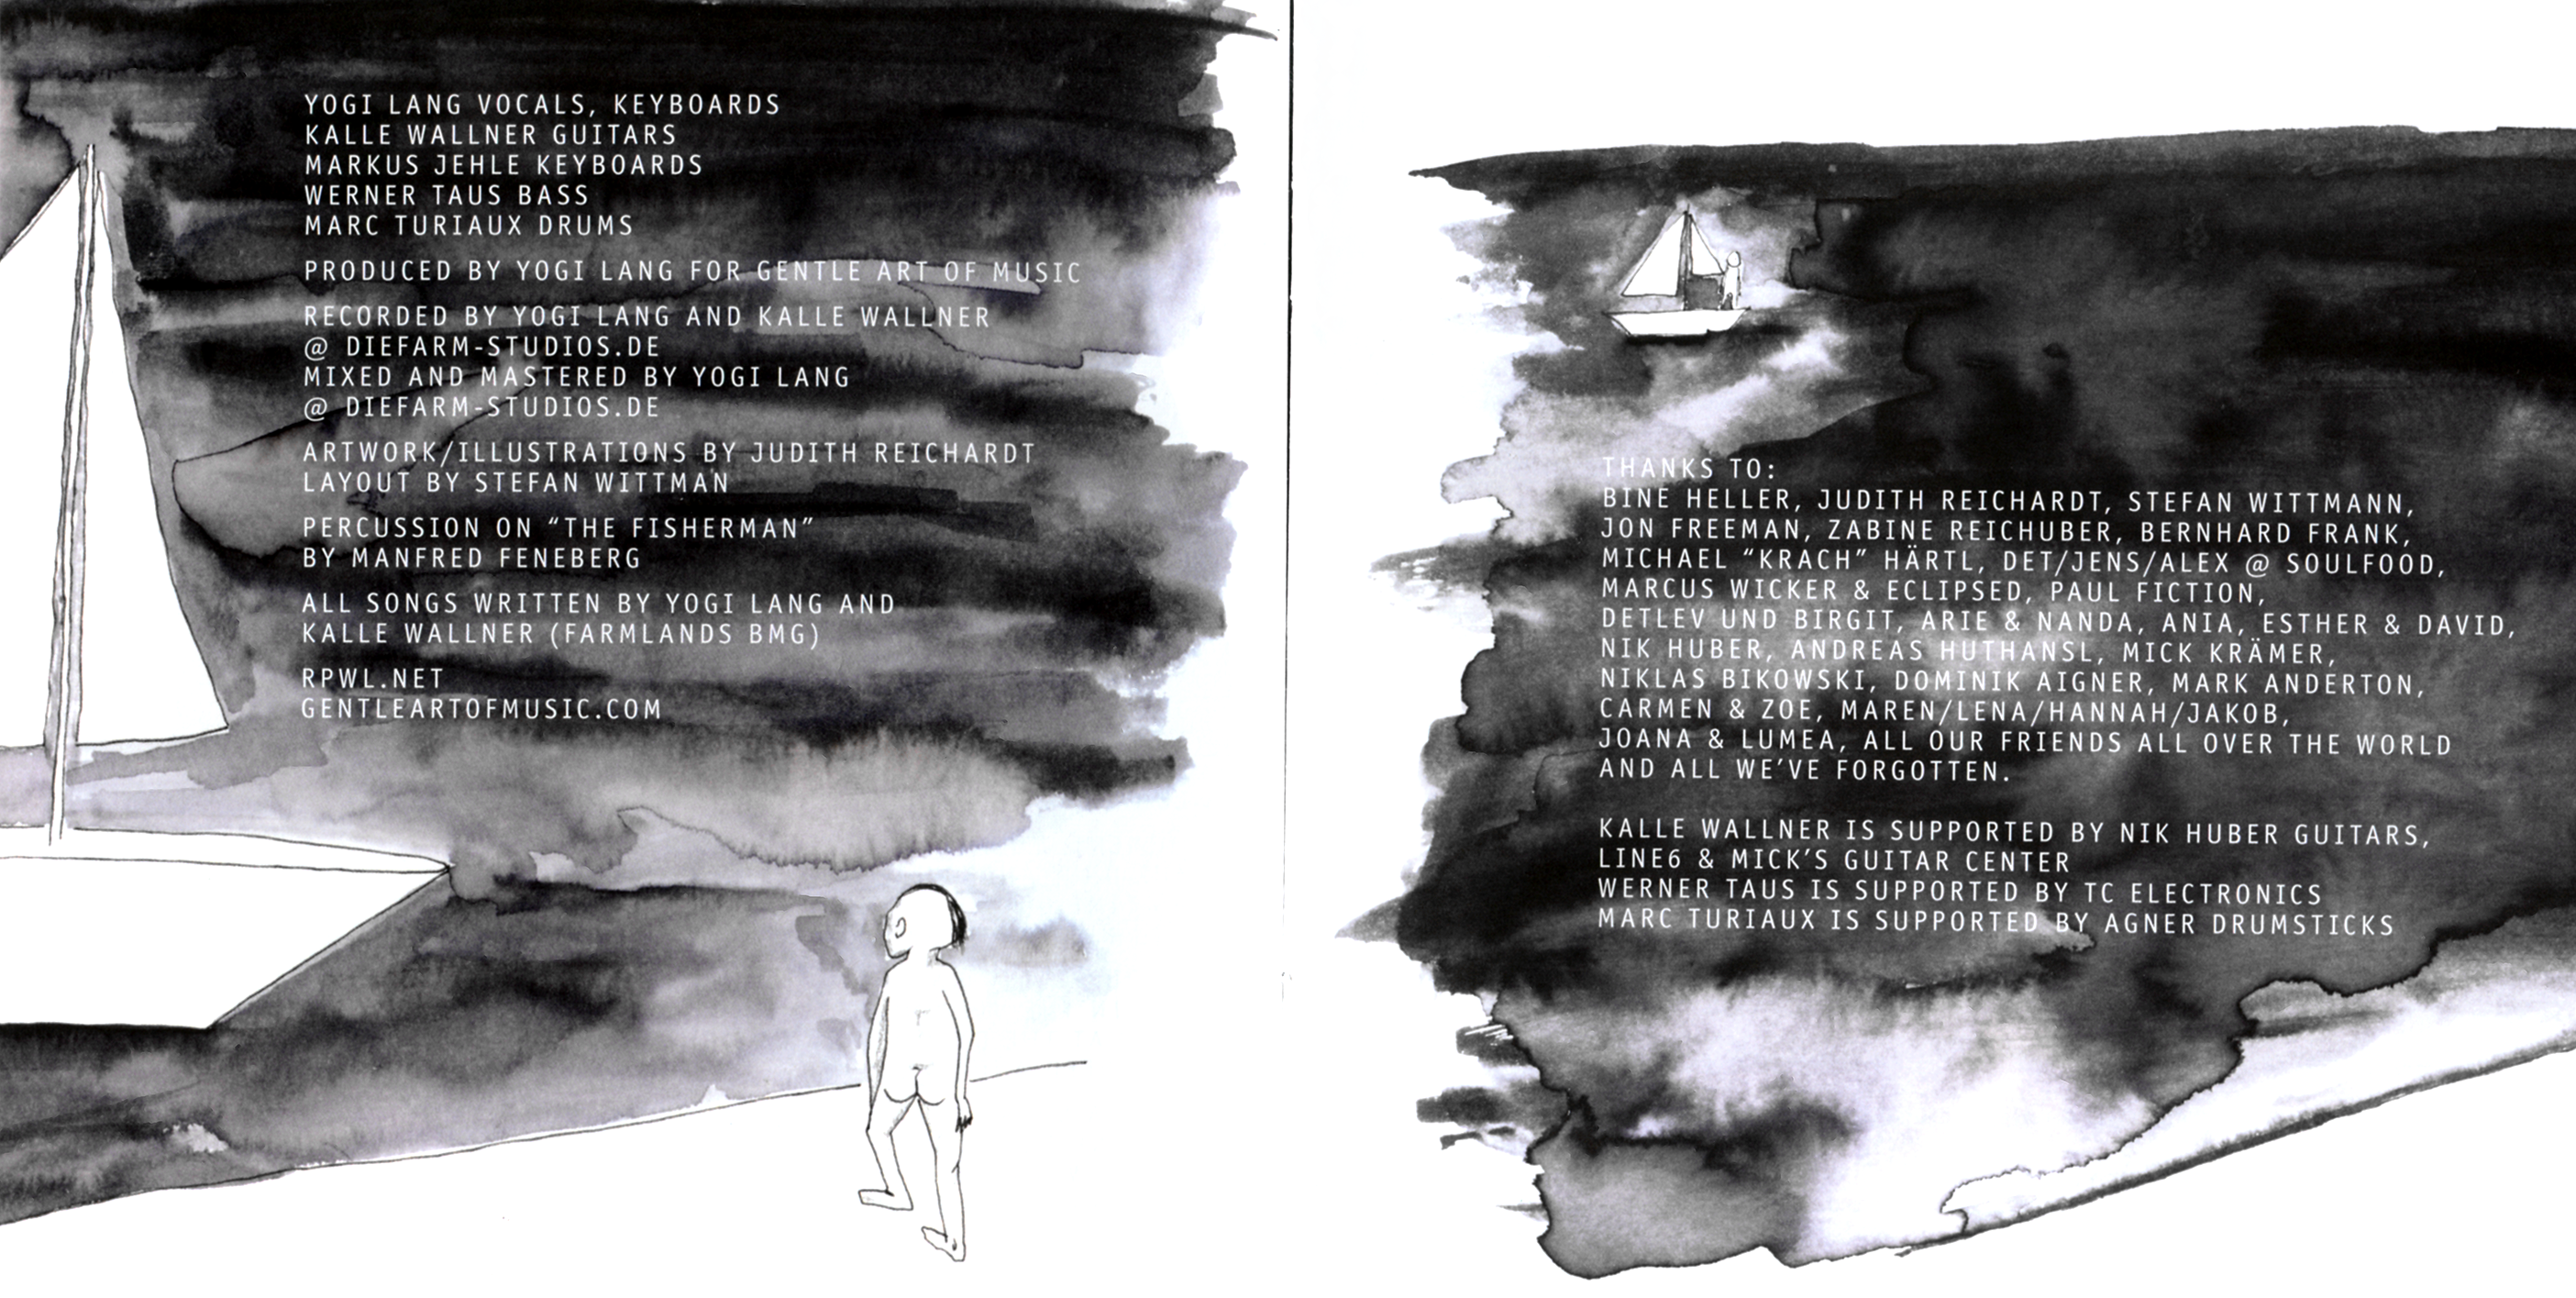 YOGI LANG VOCALS, KEYBOARDS
KALLE WALLNER GUITARS
MARKUS JEHLE KEYBOARDS
WERNER TAUS BASS
MARC TURIAUX DRUMS
PRODUCED BY YOGI LANG FOR GENTLE ART OF MUSIC
RECORDED BY YOGI LANG AND KALLE WALLNER
@ DIEFARM-STUDIOS.DE
MIXED AND MASTERED BY YOGI LANG
@ DIEFARM-STUDIOS.DE
ARTWORK/ILLUSTRATIONS BY JUDITH REICHARDT
LAYOUT BY STEFAN WITTMAN
PERCUSSION ON “THE FISHERMAN”
BY MANFRED FENEBERG
ALL SONGS WRITTEN BY YOGI LANG AND
KALLE WALLNER (FARMLANDS BMG)
RPWL.NET
GENTLEARTOFMUSIC.COM
THANKS TO:
BINE HELLER, JUDITH REICHARDT, STEFAN WITTMANN,
JON FREEMAN, ZABINE REICHUBER, BERNHARD FRANK,
MICHAEL “KRACH” HÄRTL, DET/JENS/ALEX @ SOULFOOD,
MARCUS WICKER & ECLIPSED, PAUL FICTION,
DETLEV UND BIRGIT, ARIE & NANDA, ANIA, ESTHER & DAVID,
NIK HUBER, ANDREAS HUTHANSL, MICK KRÄMER,
NIKLAS BIKOWSKI, DOMINIK AIGNER, MARK ANDERTON,
CARMEN & ZOE, MAREN/LENA/HANNAH/JAKOB,
JOANA & LUMEA, ALL OUR FRIENDS ALL OVER THE WORLD
AND ALL WE’VE FORGOTTEN.
KALLE WALLNER IS SUPPORTED BY NIK HUBER GUITARS,
LINE6 & MICK’S GUITAR CENTER
WERNER TAUS IS SUPPORTED BY TC ELECTRONICS
MARC TURIAUX IS SUPPORTED BY AGNER DRUMSTICKS